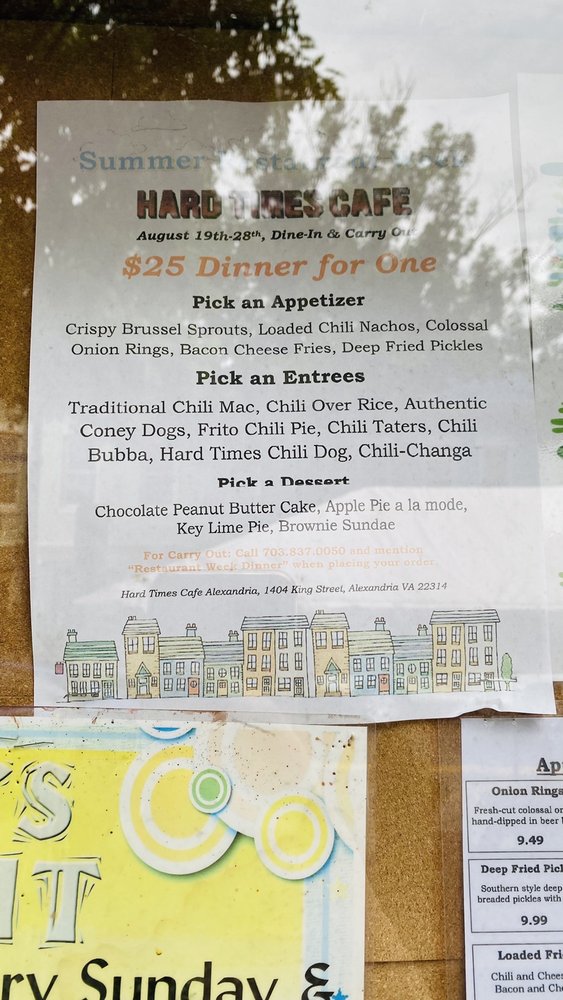 Summer Restaurant Week
HARD TIMES CAFE
August 19th-28th, Dine-In & Carry Out
$25 Dinner for One
Pick an Appetizer
Crispy Brussel Sprouts, Loaded Chili Nachos, Colossal
Onion Rings, Bacon Cheese Fries, Deep Fried Pickles
Pick an Entrees
Traditional Chili Mac, Chili Over Rice, Authentic
Coney Dogs, Frito Chili Pie, Chili Taters, Chili
Bubba, Hard Times Chili Dog, Chili-Changa
Pick a Dessert
Chocolate Peanut Butter Cake, Apple Pie a la mode,
Key Lime Pie, Brownie Sundae
For Carry Out: Call 703.837.0050 and mention
"Restaurant Week Dinner" when placing your order.
Hard Times Cafe Alexandria, 1404 King Street, Alexandria VA 22314
ry Sunday &
Ap
Onion Rings
Fresh-cut colossal on
hand-dipped in beer
9.49
Deep Fried Pick
Southern style deep
breaded pickles with
9.99
Loaded Fri
Chili and Chee
Bacon and Che